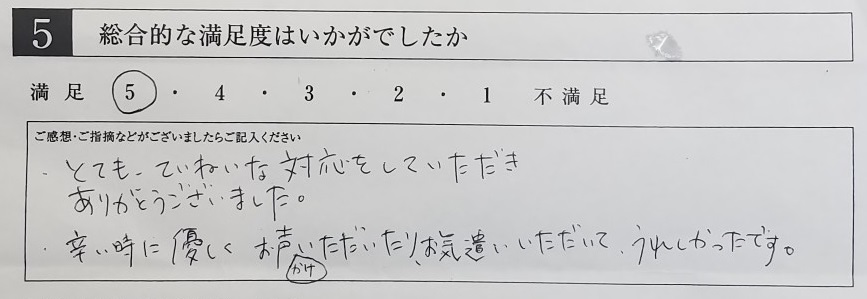 5 総合的な満足度はいかがでしたか
満足 5 ・ 4 ・ 3 ・ 2 ・ 1 不満足
ご感想・ご指摘などがございましたらご記入ください
・とても、ていねいな対応をしていただき
ありがとうございました。
・辛い時に優しくお声かけいただいたり、お気遣いいただいて、うれしかったです。